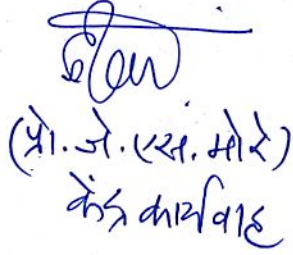 (प्रो. जे. एस. मोरे)
केंद्र कार्यवाह